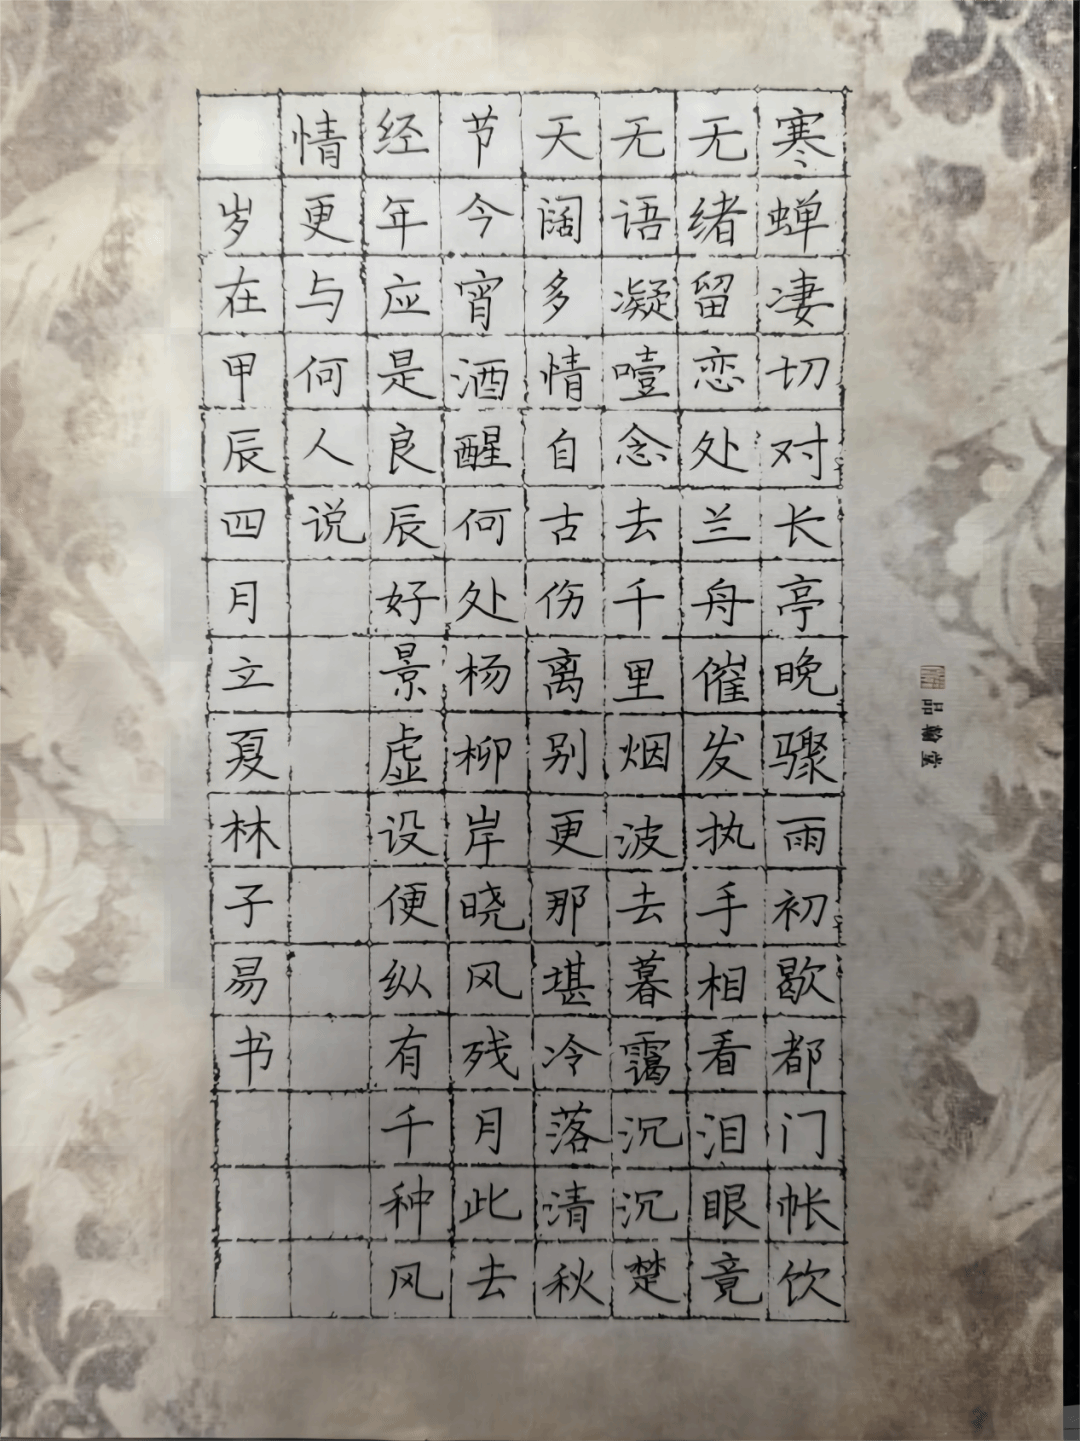 寒蝉凄切对长亭晚骤雨初歇都门帐饮
无绪留恋处兰舟催发执手相看泪眼竟
无语凝噎念去千里烟波去暮霭沉沉楚
天阔多情自古伤离别更那堪冷落清秋
节今宵酒醒何处杨柳岸晓风残月此去
经年应是良辰好景虚设便纵有千种风
情更与何人说
岁在甲辰四月立夏林子易书
品翰堂